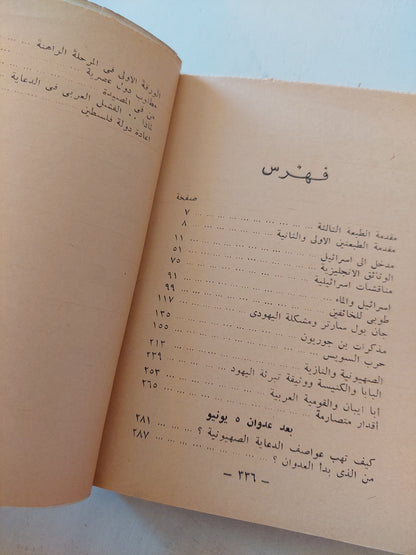 فهرس
صفحة
مقدمة الطبعة الثالثة ... ٧
مقدمة الطبعتين الاولى والثانية ... ٨
مدخل الى اسرائيل ... ١١
الوثائق الانجليزية ... ٥١
مناقشات اسرائيلية ... ٧٥
اسرائيل والماء ... ٩١
طوبى للخائفين ... ٩٩
جان بول سارتر ومشكلة اليهودى ... ١١٧
مذكرات بن جوريون ... ١٣٥
حرب السويس ... ١٥٥
الصهيونية والنازية ... ٢١٣
البابا والكنيسة ووثيقة تبرئة اليهود ... ٢٣٩
أبا ايبان والقومية العربية ... ٢٥٣
أقدار متصارعة ... ٢٦٥
بعد عدوان ٥ يونيو
كيف تهب عواصف الدعاية الصهيونية ؟ ... ٢٨١
من الذى بدأ العدوان ؟ ... ٢٨٧
— ٣٣٦ —
الورقة الاولى فى المرحلة الراهنة
مطلوب دون عصرية
من فى المصيدة
لماذا .. الفشل العربى فى الدعاية
اعادة دولة فلسطين